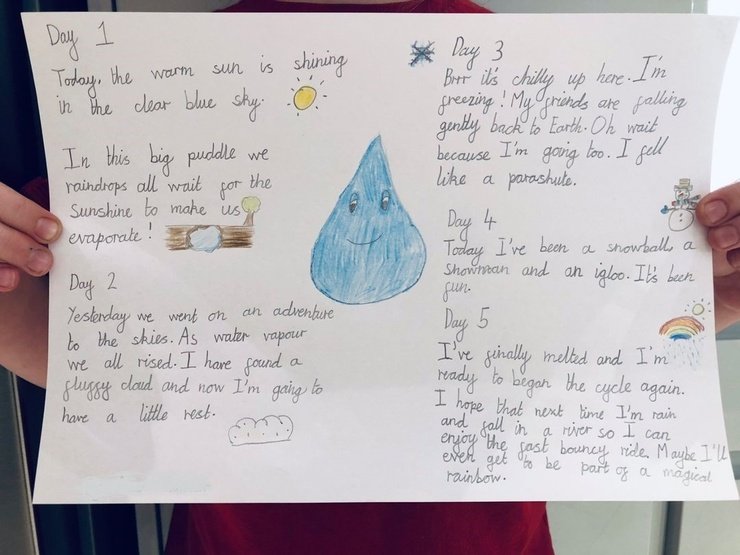 Day 1
Today, the warm sun is shining
in the clear blue sky.
In this big puddle we
raindrops all wait for the
Sunshine to make us
evaporate!
Day 2
Yesterday we went on an adventure
to the skies. As water vapour
we all rised. I have found a
fluffy cloud and now I'm going to
have a little rest.
Day 3
Brrr it's chilly up here. I'm
freezing! My friends are falling
gently back to Earth. Oh wait
because I'm going too. I fell
like a parashute.
Day 4
Today I've been a snowball, a
Snowman and an igloo. It's been
fun.
Day 5
I've finally melted and I'm
ready to began the cycle again.
I hope that next time I'm rain
and fall in a river so I can
enjoy the fast bouncy ride. Maybe I'll
even get to be part of a magical
rainbow.